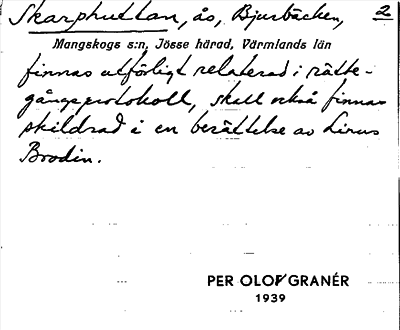 Skarphuttan, ås, Bjurbäcken, 2
Mangskogs s:n, Jösse härad, Värmlands län
finnas utförligt relaterad i rätte-
gångsprotokoll, skall också finnas
skildrad i en berättelse av Linus
Brodin.
PER OLOF GRANÉR
1939